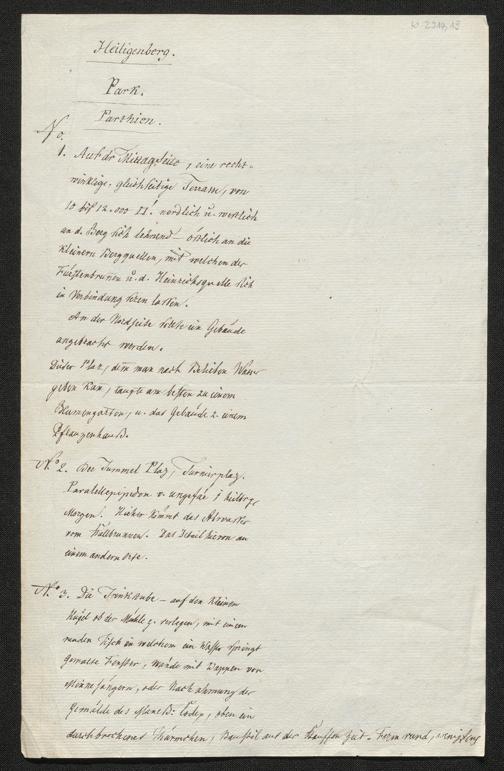 K 2914,13
Heiligenberg.
Park.
Parthien.
No.
1. Auf der Mittagseite, eine recht-
winklige, gleichseitige Terrasse, von
10 bis 12.000 □'. nördlich u. westlich
an d. Berg sich lehnend – östlich an die
kleinern Bergquellen, mit welchen der
Fürstenbrunnen u. d. Heinrichsquelle sich
in Verbindung sezen lassen.
An der Nordseite sollte ein Gebäude
angebracht werden.
Dieser Plaz, dem man nach Belieben Wasser
geben kan, taugte am besten zu einem
Blumengarten, u. das Gebäude z. einem
Pflanzenhauß.
No. 2. Der Tummel Plaz, Turnirplaz.
Parallelepipedon v. ungefär 1
Morgen. Hieher kömmt das
vom Wallbrunnen. Das Detail hievon an
einem andern Orte.
No. 3. Die Trinkstube – auf den kleinen
Hügel ob der Mühle z. verlegen, mit einem
runden Tisch in welchem ein Wasser springt
Gemalte Fenster, Wände mit Wappen von
Minnesängern, oder Nachahmung der
Gemälde des Codex, oben ein
durchbrochenes Thürmchen, Baustil aus der Zeit. Form rund,